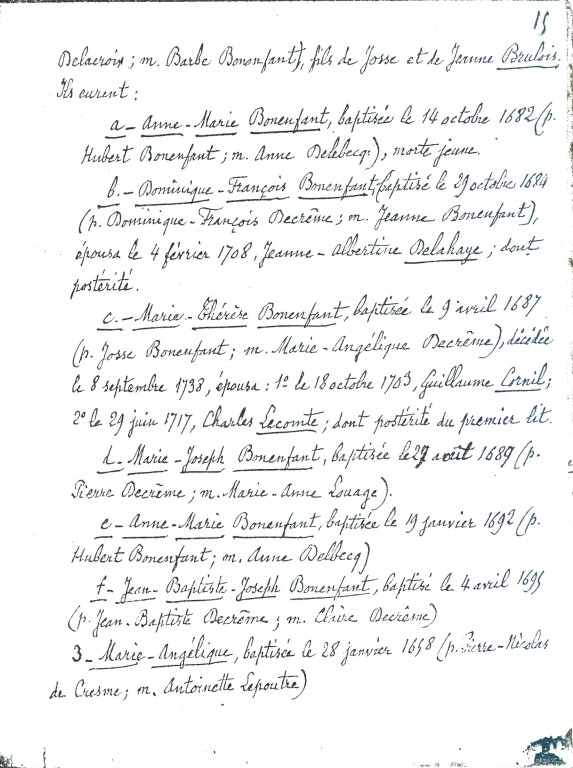 15
Delacroix ; m. Barbe Bonenfant), fils de Josse et de Jeanne Brulois.
Ils eurent :
a_ Anne-Marie Bonenfant, baptisée le 14 octobre 1682 (p.
Hubert Bonenfant ; m. Anne Delebecq.), morte jeune.
b._ Dominique-François Bonenfant, baptisé le 29 octobre 1684
(p. Dominique-François Decrême ; m. Jeanne Bonenfant),
épousa le 4 février 1708, Jeanne-Albertine Delahaye ; dont
postérité.
c._ Marie-Thérèse Bonenfant, baptisée le 9 avril 1687
(p. Josse Bonenfant ; m. Marie-Angélique Decrême), décédée
le 8 septembre 1738, épousa : 1º le 18 octobre 1703, Guillaume Cornil ;
2º le 29 juin 1717, Charles Lecomte ; dont postérité du premier lit.
d_ Marie-Joseph Bonenfant, baptisée le 27 août 1689 (p.
Pierre Decrême ; m. Marie-Anne Louage).
e_ Anne-Marie Bonenfant, baptisée le 19 janvier 1692 (p.
Hubert Bonenfant ; m. Anne Delbecq)
f_ Jean-Baptiste-Joseph Bonenfant, baptisé le 4 avril 1695
(p. Jean-Baptiste Decrême ; m. Claire Decrême)
3_ Marie-Angélique, baptisée le 28 janvier 1658 (p. Pierre-Nicolas
de Cresme ; m. Antoinette Lepoutre)